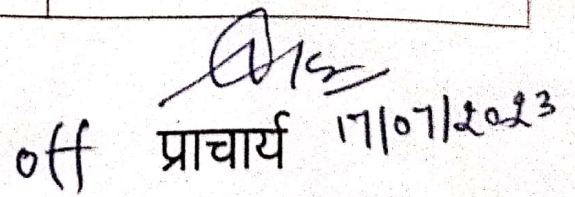 off प्राचार्य 17/07/2023